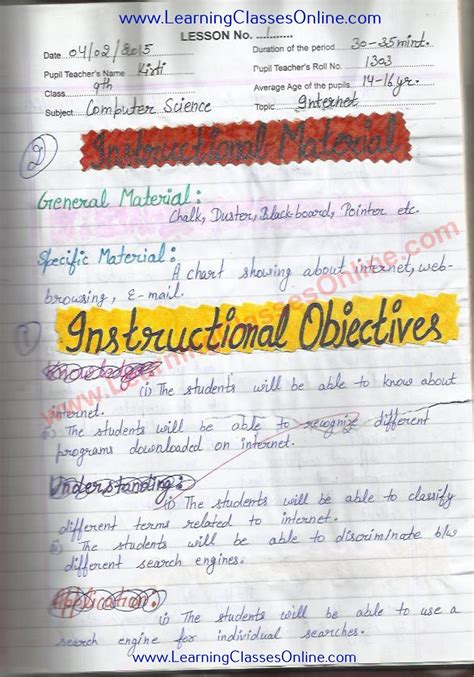 www.LearningClassesOnline.com
LESSON No. ...1...
Date 04/02/2015 Duration of the period 30-35mint.
Pupil Teacher's Name Kisti Pupil Teacher's Roll No. 1303
Class 9th Average Age of the pupils 14-16yr.
Subject Computer Science Topic Internet
2 Instructional Material
General Material:
Chalk, Duster, Blackboard, Pointer etc.
Specific Material:
A chart showing about internet, web-
browsing, E-mail.
1 Instructional Objectives
Knowledge
(i) The students will be able to know about
internet.
ii) The students will be able to recognize different
programs downloaded on internet.
Understanding:
i) The students will be able to classify
different terms related to internet.
ii) The students will be able to discriminate b/w
different search engines.
Application:
i) The students will be able to use a
search engine for individual searches.
www.LearningClassesOnline.com
www.LearningClassesOnline.com